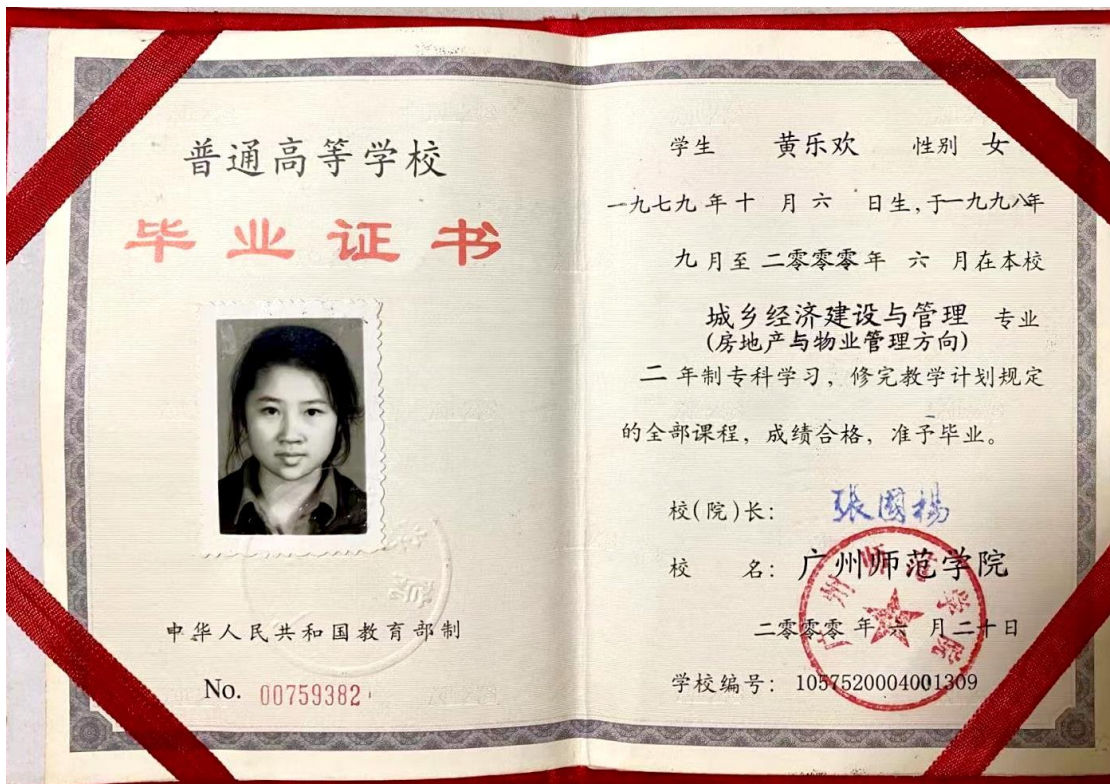 普通高等学校
毕业证书
中华人民共和国教育部制
No. 00759382
学生 黄乐欢 性别 女
一九七九年十月六日生,于一九九八年
九月至二零零零年 六 月在本校
城乡经济建设与管理 专业
(房地产与物业管理方向)
二年制专科学习，修完教学计划规定
的全部课程，成绩合格，准予毕业。
校(院)长: 張國楊
校 名: 广州师范学院
广州师范学院
二零零零年六月二十日
学校编号: 1057520004001309